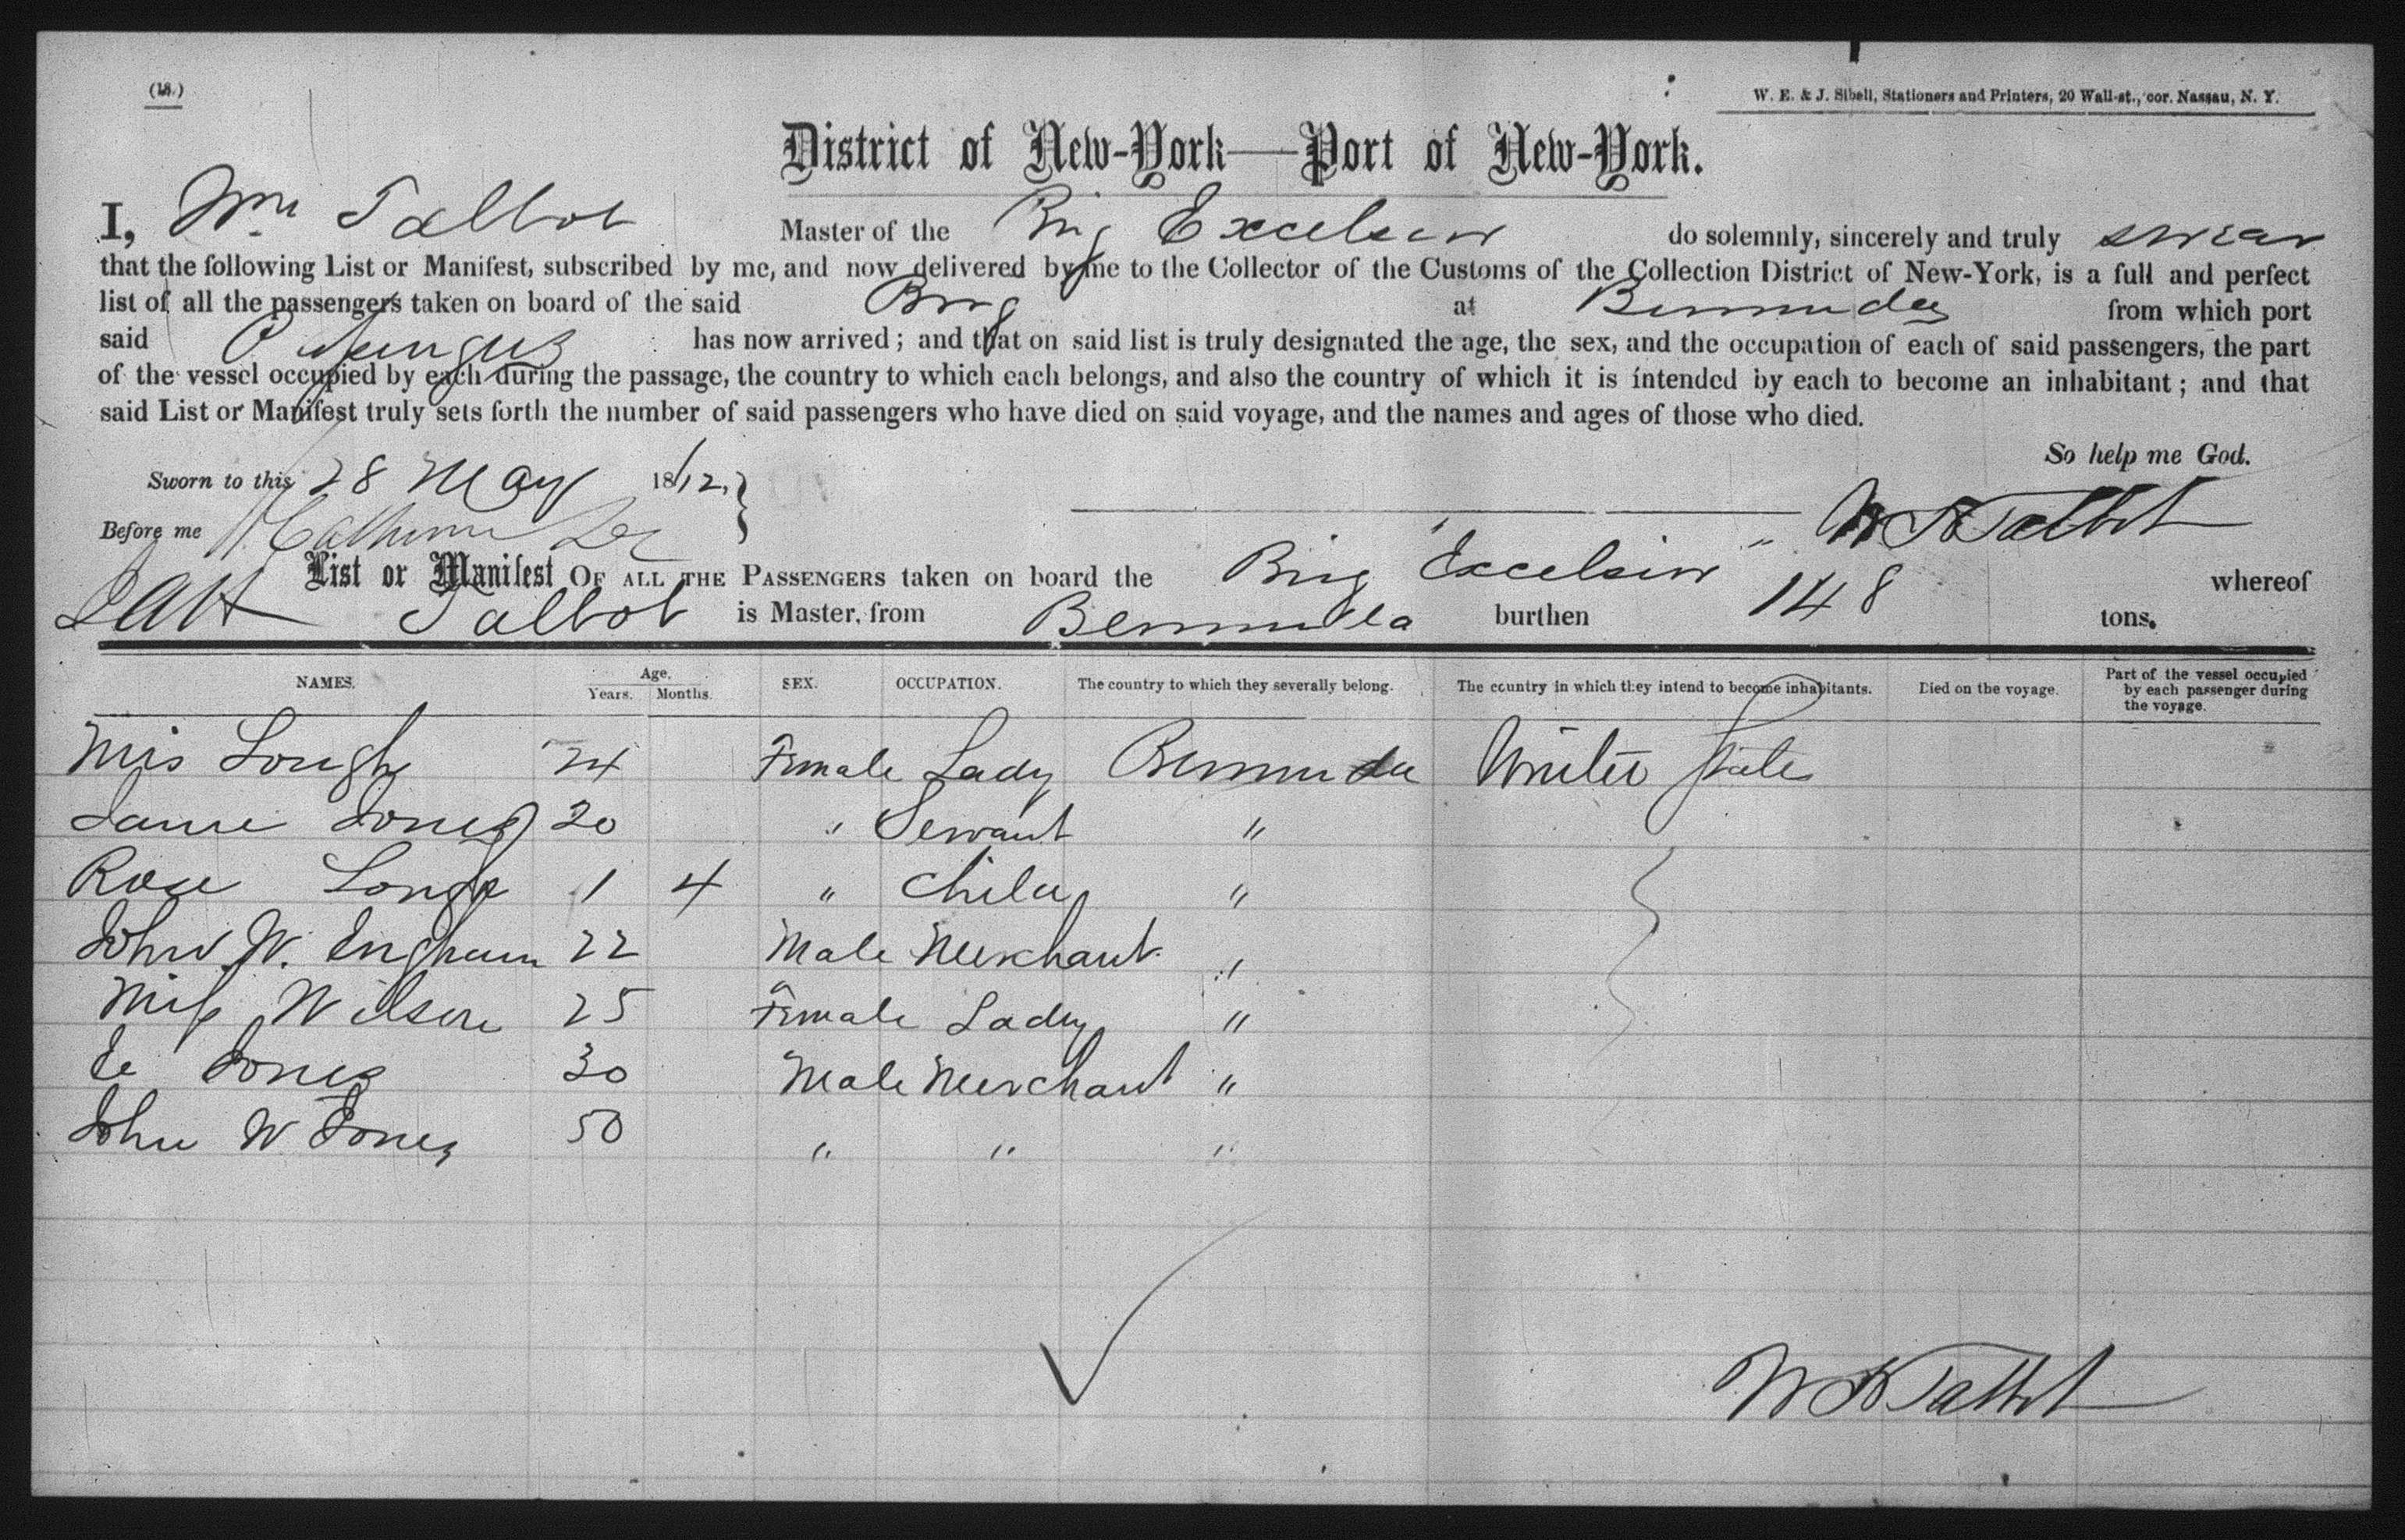 (18.)
W. E. & J. Sibell, Stationers and Printers, 20 Wall-st., cor. Nassau, N. Y.
District of New-York—Port of New-York.
I, Wm Talbot Master of the Brig Excelsior do solemnly, sincerely and truly swear
that the following List or Manifest, subscribed by me, and now delivered by me to the Collector of the Customs of the Collection District of New-York, is a full and perfect
list of all the passengers taken on board of the said Brig at Bermuda from which port
said has now arrived; and that on said list is truly designated the age, the sex, and the occupation of each of said passengers, the part
of the vessel occupied by each during the passage, the country to which each belongs, and also the country of which it is intended by each to become an inhabitant; and that
said List or Manifest truly sets forth the number of said passengers who have died on said voyage, and the names and ages of those who died.
So help me God.
Sworn to this 28 May 18
Before me
W H Talbot
List or Manifest OF ALL THE PASSENGERS taken on board the Brig Excelsior whereof
Talbot is Master, from Bermuda burthen 148 tons.
NAMES. Age. Years. Months. SEX. OCCUPATION. The country to which they severally belong. The country in which they intend to become inhabitants. Died on the voyage. Part of the vessel occupied by each passenger during the voyage.
Mrs Lough 24 Female Lady Bermuda United States
Jones 20 " Servant "
Rose Lough 1 4 " Child "
John W. Ingham 22 Male Merchant "
Miss Wilson 25 Female Lady "
Jones 30 Male Merchant "
John W Jones 50 " " "
W H Talbot